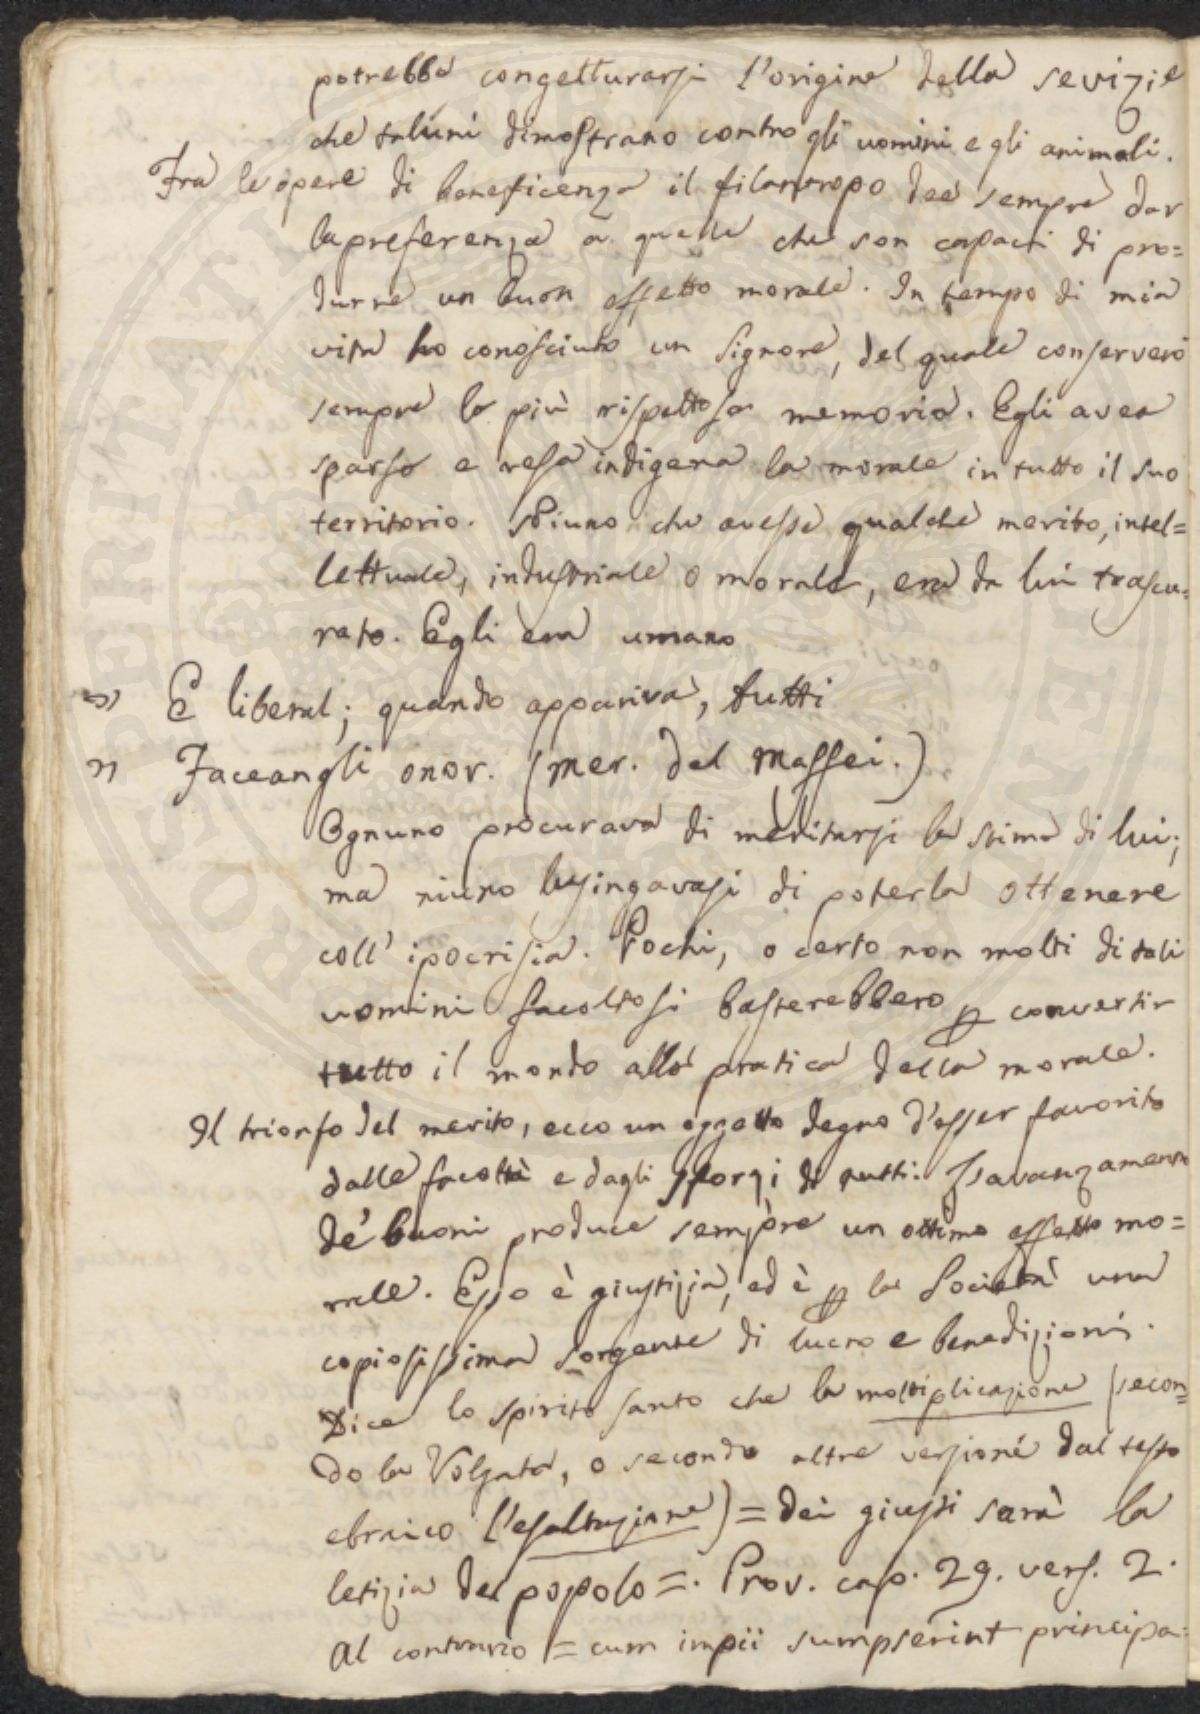 potrebbe congetturarsi l'origine della sevizie
che taluni dimostrano contro gli uomini e gli animali.
Fra le opere di beneficenza il filantropo dee sempre dar
la preferenza a quelle che son capaci di pro=
durre un buon effetto morale. In tempo di mia
vita ho conosciuto un Signore, del quale conserverò
sempre la più rispettosa memoria. Egli avea
sparso e resa indigena la morale in tutto il suo
territorio. Niuno che avesse qualche merito, intel=
lettuale, industriale o morale, era da lui trascu=
rato. Egli era umano
" E liberal; quando appariva, tutti
" Faceangli onor. (Mer. del Maffei.)
Ognuno procurava di meritarsi la stima di lui;
ma niuno lusingavasi di poterla ottenere
coll' ipocrisia. Pochi, o certo non molti di tali
uomini facoltosi basterebbero p convertir
tutto il mondo alla pratica della morale.
Il trionfo del merito, ecco un oggetto degno d'esser favorito
dalle facoltà e dagli sforzi di tutti. L'avanzamento
de' buoni produce sempre un ottimo effetto mo=
rale. Esso è giustizia, ed è p la Società una
copiosissima sorgente di lucro e benedizioni.
Dice lo spirito santo che la moltiplicazione (secon=
do la Volgata, o secondo altre versioni dal testo
ebraico l'esaltazione) = dei giusti sarà la
letizia del popolo =. Prov. cap. 29. vers. 2.
Al contrario = cum impii sumpserint principa=